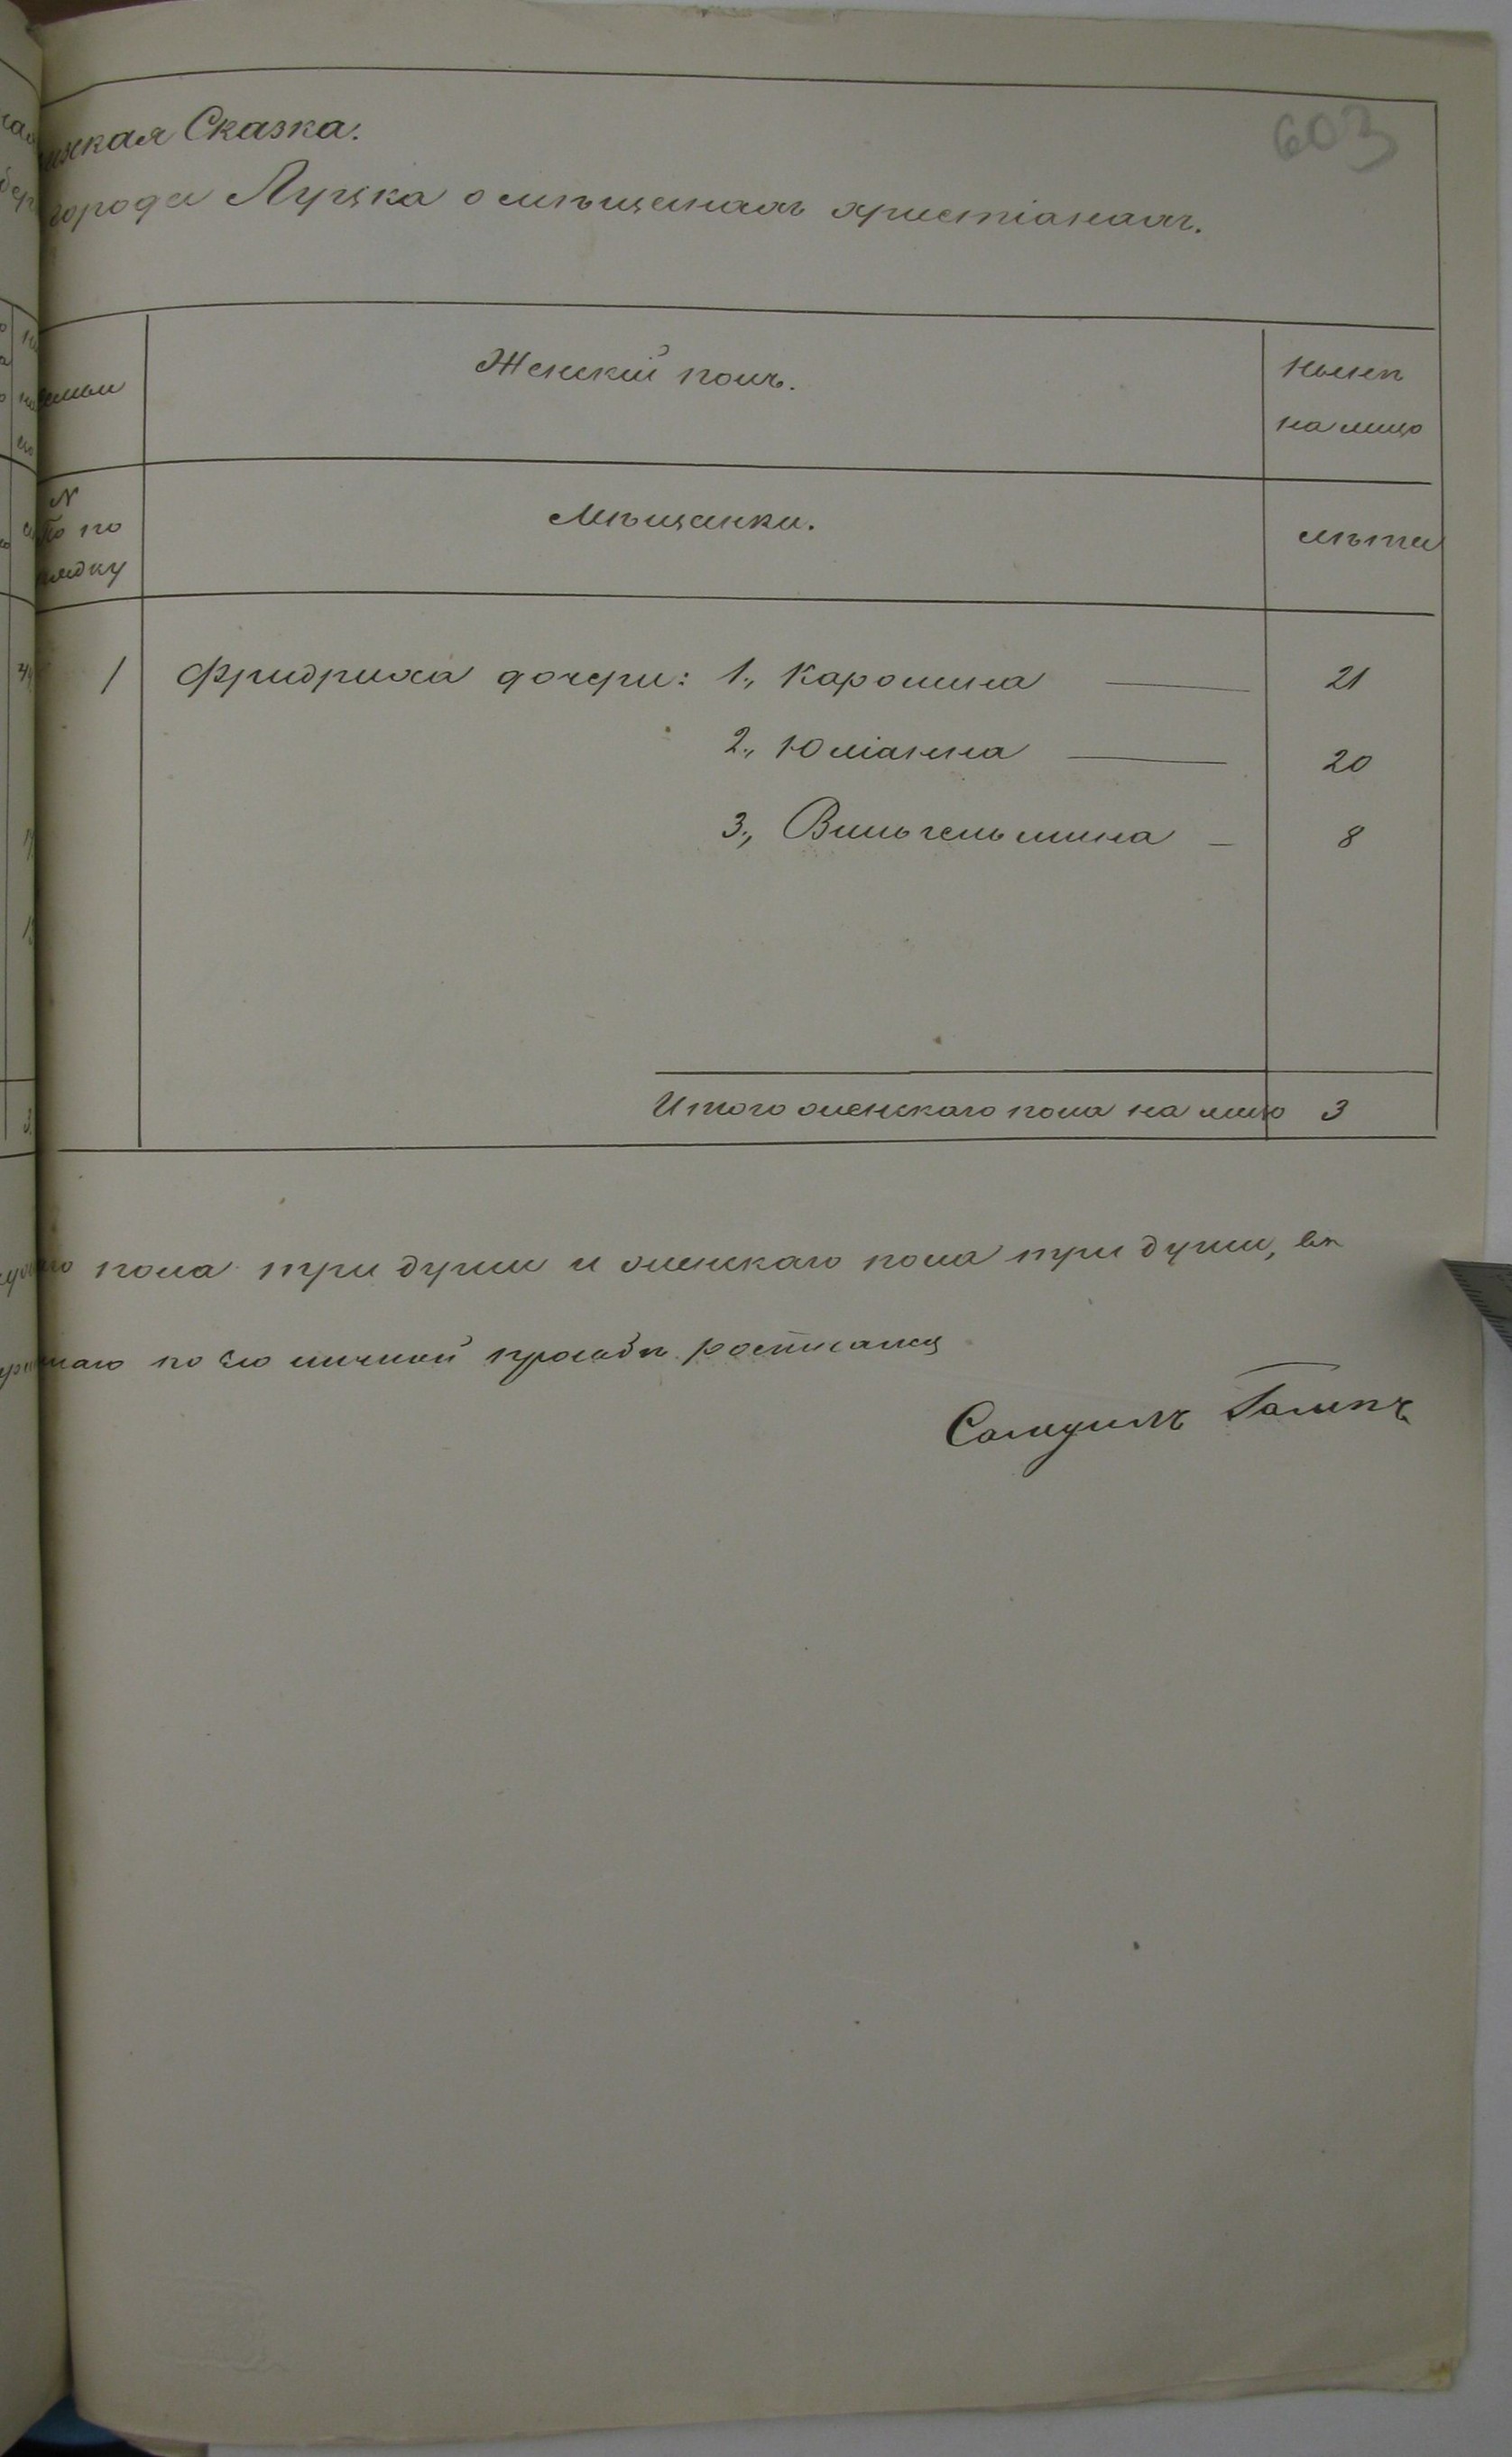 603
жская Сказка.
города Луцка о мѣщанахъ христіанахъ.
семьи
Женскій полъ.
Нынѣ
на лицо
N
По по
рядку
Мѣщанки.
лѣта
1 Фридриха дочери: 1., Каролина 21
2., Юліанна 20
3., Вильгельмина 8
Итого женскаго пола на лицо 3
пола три души и женскаго пола три души, въ
по его личной просьбѣ росписался
Самуилъ